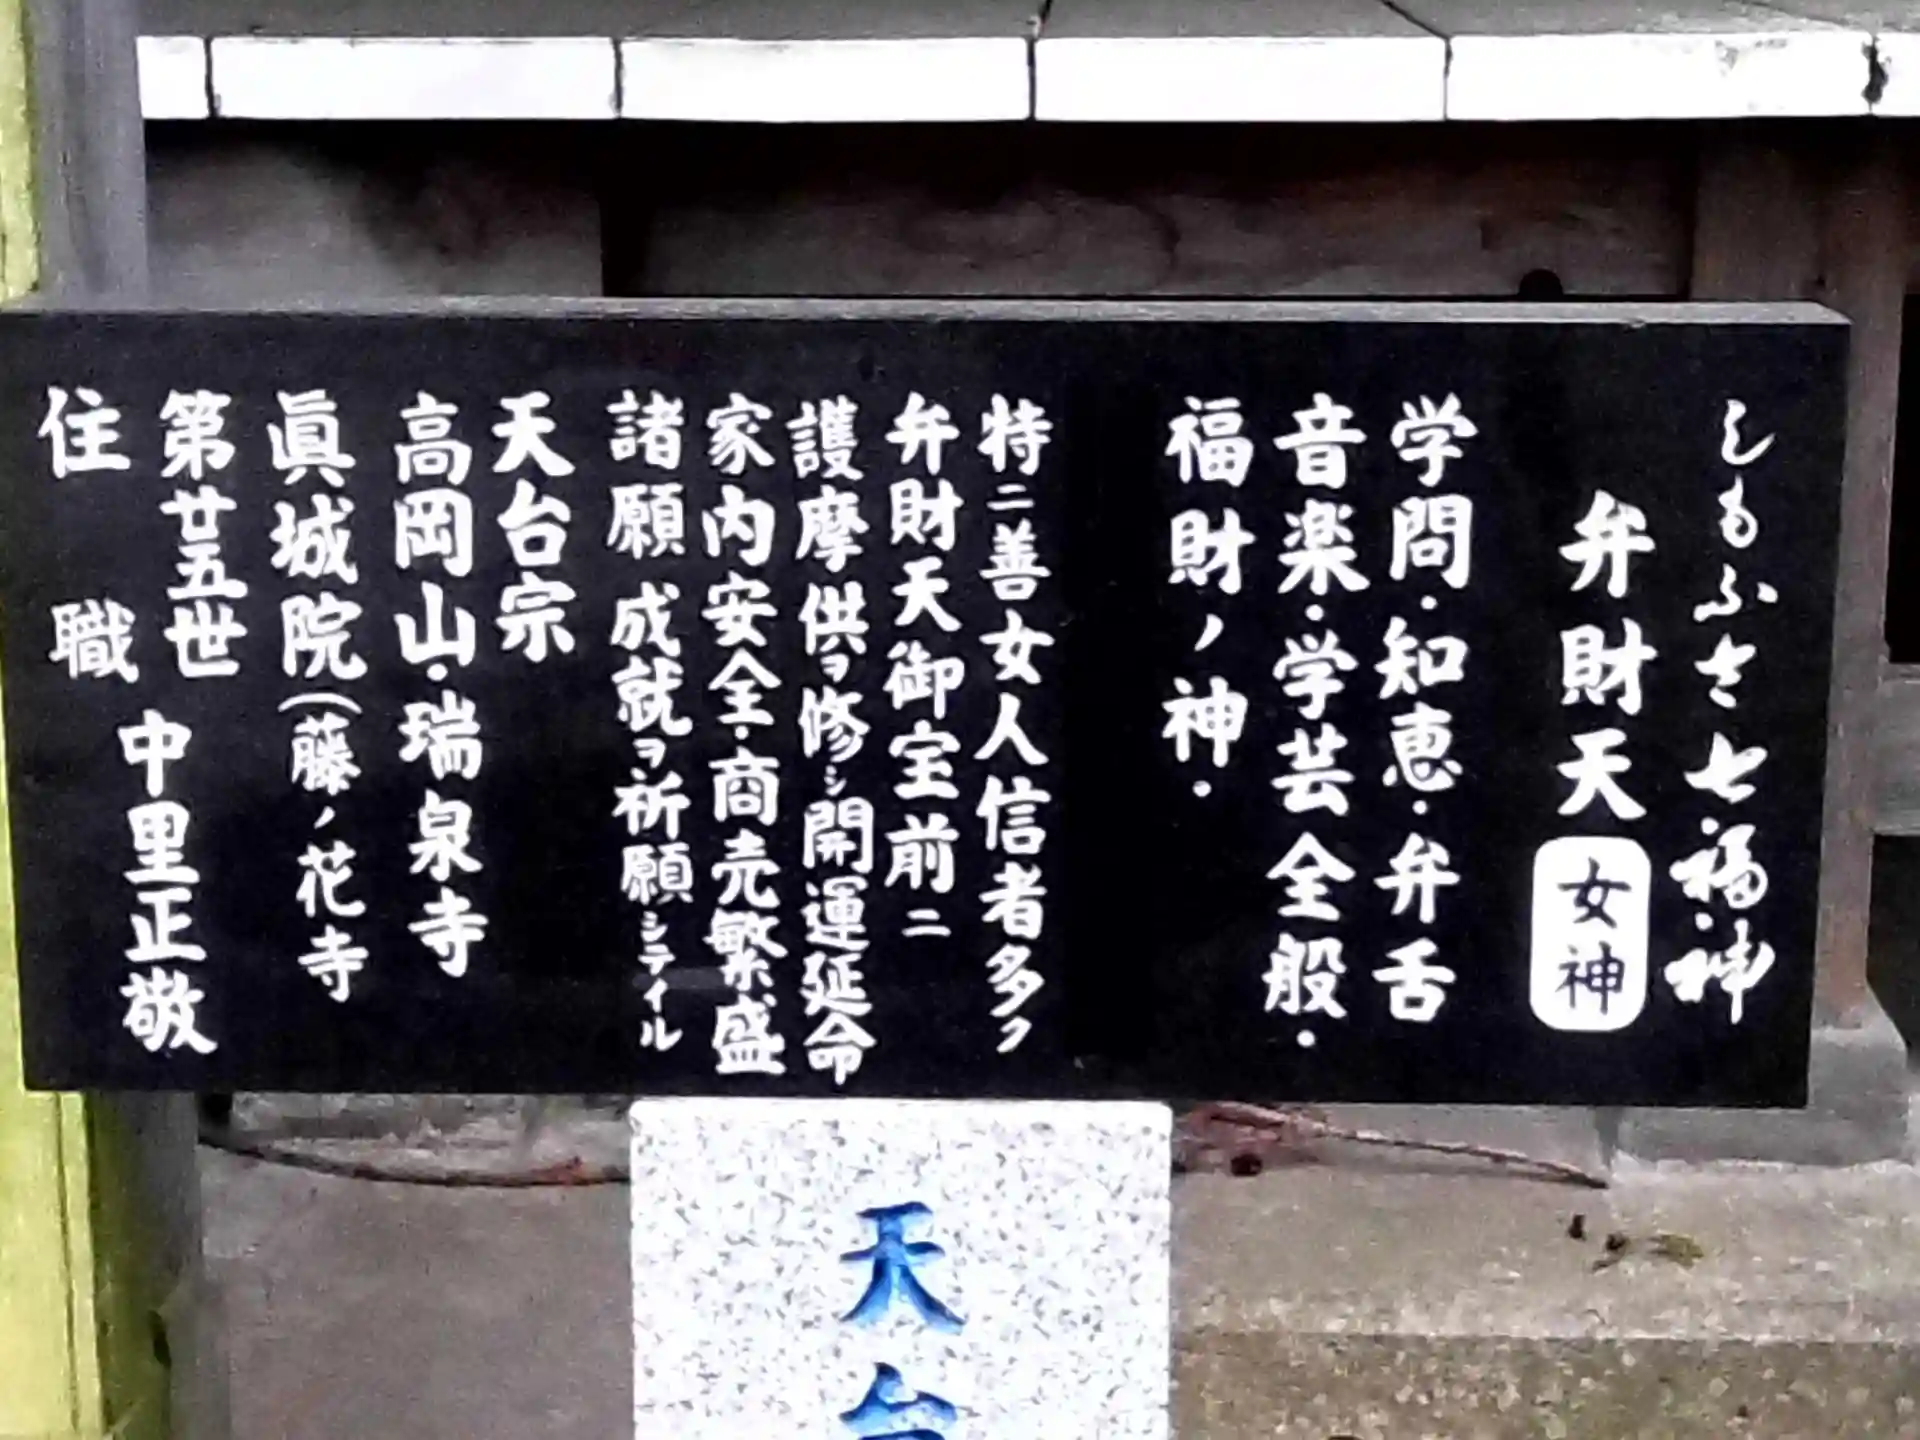 しもふさ七福神
弁財天 女神
学問・知恵・弁舌
音楽・学芸全般・
福財ノ神・
特ニ善女人信者多ク
弁財天御宝前ニ
護摩供ヲ修シ開運延命
家内安全・商売繁盛
諸願成就ヲ祈願シテイル
天台宗
高岡山・瑞泉寺
眞城院(藤ノ花寺
第廿五世
住職 中里正敬
天台